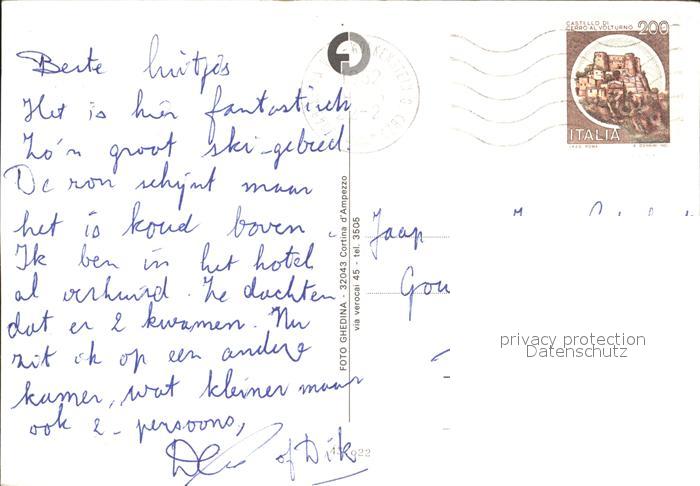 CASTELLO DI
CERRO AL VOLTURNO 200
ITALIA
I.P.Z.S. ROMA
Beste
Het is hier fantastisch
Zo'n groot ski-gebied.
De zon schijnt maar
het is koud boven.
Ik ben in het hotel
al verhuisd. Ze dachten
dat er 2 kwamen. Nu
zit ik op een andere
kamer, wat kleiner maar
ook 2-persoons,
of Dik
FOTO GHEDINA - 32043 Cortina d'Ampezzo
via verocai 45 - tel. 3505
Jaap
Gou
privacy protection
Datenschutz